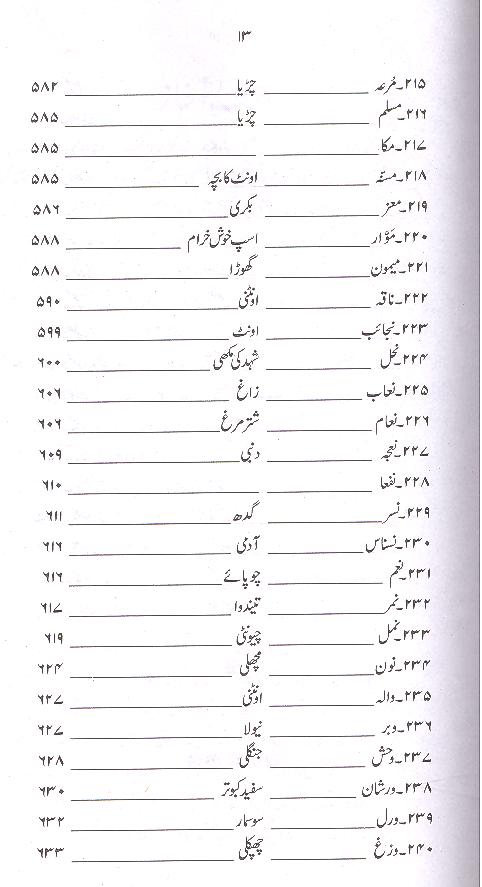 ۱۳
۲۱۵۔مرعہ ____ چڑیا ____ ۵۸۲
۲۱۶۔مسلم ____ چڑیا ____ ۵۸۵
۲۱۷۔مکا ____ ____ ۵۸۵
۲۱۸۔مسنّہ ____ اونٹ کا بچہ ____ ۵۸۵
۲۱۹۔معز ____ بکری ____ ۵۸۶
۲۲۰۔موّار ____ اسپ خوش خرام ____ ۵۸۸
۲۲۱۔میمون ____ گھوڑا ____ ۵۸۸
۲۲۲۔ناقہ ____ اونٹنی ____ ۵۹۰
۲۲۳۔نجائب ____ اونٹ ____ ۵۹۹
۲۲۴۔نحل ____ شہد کی مکھی ____ ۶۰۰
۲۲۵۔نعاب ____ زاغ ____ ۶۰۶
۲۲۶۔نعام ____ شتر مرغ ____ ۶۰۶
۲۲۷۔نعجہ ____ دنبی ____ ۶۰۹
۲۲۸۔نفعا ____ ____ ۶۱۰
۲۲۹۔نسر ____ گدھ ____ ۶۱۱
۲۳۰۔نسناس ____ آدمی ____ ۶۱۶
۲۳۱۔نعم ____ چوپائے ____ ۶۱۶
۲۳۲۔نمر ____ تیندوا ____ ۶۱۷
۲۳۳۔نمل ____ چیونٹی ____ ۶۱۹
۲۳۴۔نون ____ مچھلی ____ ۶۲۴
۲۳۵۔والہ ____ اونٹنی ____ ۶۲۷
۲۳۶۔وبر ____ نیولا ____ ۶۲۷
۲۳۷۔وحش ____ جنگلی ____ ۶۲۸
۲۳۸۔ورشان ____ سفید کبوتر ____ ۶۳۰
۲۳۹۔ورل ____ سوسمار ____ ۶۳۲
۲۴۰۔وزغ ____ چھپکلی ____ ۶۳۳